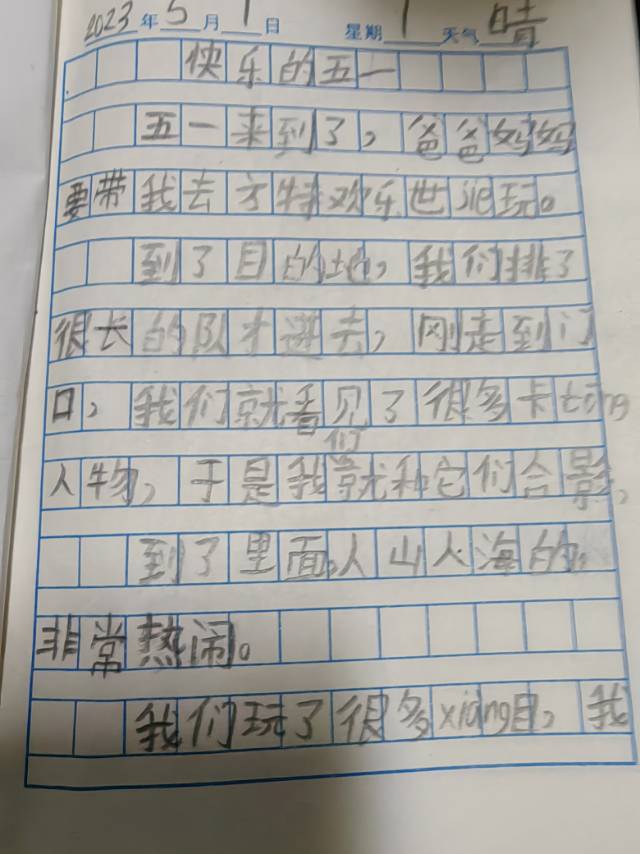 2023年5月1日 星期1 天气晴
快乐的五一
五一来到了，爸爸妈妈
要带我去方特欢乐世jie玩。
到了目的地，我们排了
很长的队才进去，刚走到门
口，我们就看见了很多卡tong
人物，于是我们就和它们合影，
到了里面，人山人海的，
非常热闹。
我们玩了很多xiàng目，我